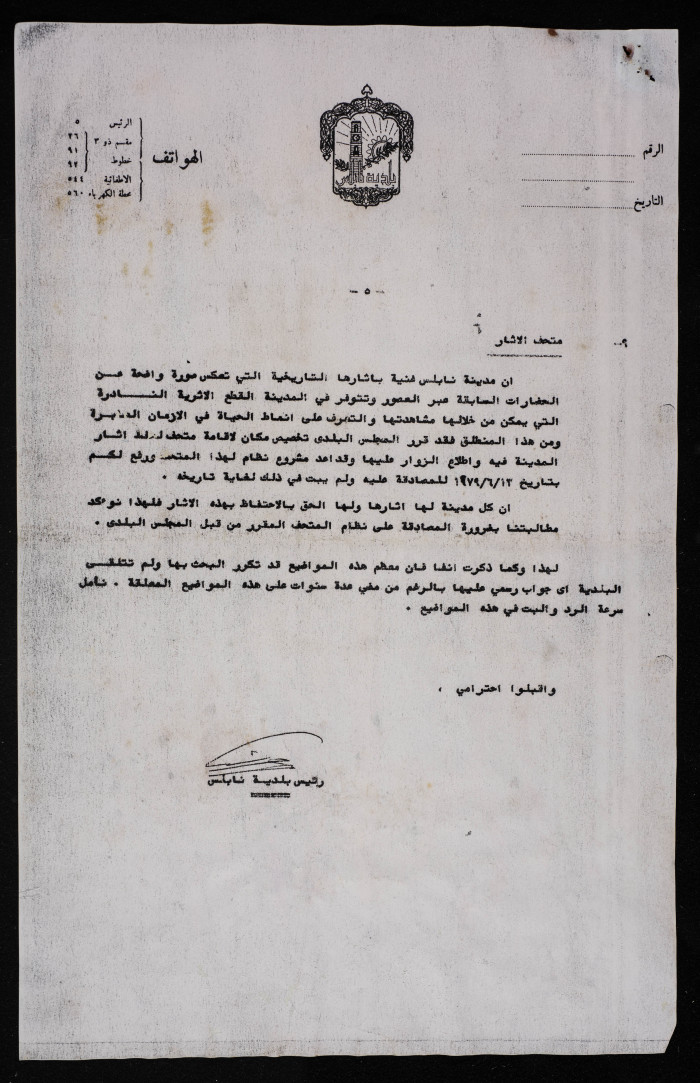 الرقم
التاريخ
بلدية نابلس
الهواتف
الرئيس ٥
مقسم ذو ٣ خطوط ٢٦ ٩١ ٩٢
الاطفائية ٥٤٤
محطة الكهرباء ٥٦٠
- ٥ -
متحف الاثار
ان مدينة نابلس غنية باثارها التاريخية التي تعكس صورة واضحة عن
الحضارات السابقة عبر العصور وتتوفر في المدينة القطع الاثرية النادرة
التي يمكن من خلالها مشاهدتها والتعرف على انماط الحياة في الازمان الغابرة
ومن هذا المنطلق فقد قرر المجلس البلدى تخصيص مكان لاقامة متحف اثار
المدينة فيه واطلاع الزوار عليها وقد اعد مشروع نظام لهذا المتحف ورفع لكم
بتاريخ ١٩٧٩/٦/١٣ للمصادقة عليه ولم يبت في ذلك لغاية تاريخه .
ان كل مدينة لها اثارها ولها الحق بالاحتفاظ بهذه الاثار فلهذا نوءكد
مطالبتنا بضرورة المصادقة على نظام المتحف المقرر من قبل المجلس البلدى .
لهذا وكما ذكرت انفا فان معظم هذه المواضيع قد تكرر البحث بها ولم تتلقى
البلدية اى جواب رسمي عليها بالرغم من مضي عدة سنوات على هذه المواضيع المعلقة . نأمل
سرعة الرد والبت في هذه المواضيع .
واقبلوا احترامي ،
رئيس بلدية نابلس